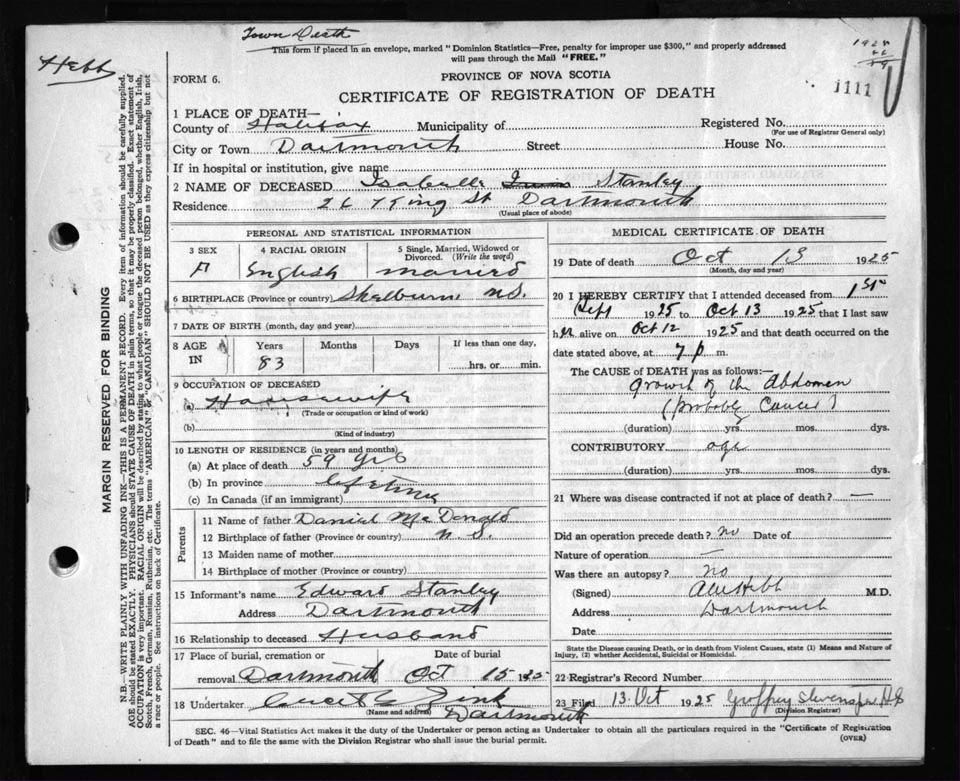 Town Death
This form if placed in an envelope, marked "Dominion Statistics—Free, penalty for improper use $300," and properly addressed
will pass through the Mail "FREE."
Hebb
1111
FORM 6.
PROVINCE OF NOVA SCOTIA
CERTIFICATE OF REGISTRATION OF DEATH
1 PLACE OF DEATH—
County of Halifax Municipality of Registered No.
(For use of Registrar General only)
City or Town Dartmouth Street House No.
If in hospital or institution, give name
2 NAME OF DECEASED Isabelle Stanley
Residence 26 King St Dartmouth
(Usual place of abode)
PERSONAL AND STATISTICAL INFORMATION
3 SEX
F
4 RACIAL ORIGIN
English
5 Single, Married, Widowed or
Divorced. (Write the word)
married
6 BIRTHPLACE (Province or country) Shelburne N.S.
7 DATE OF BIRTH (month, day and year)
8 AGE IN
Years Months Days If less than one day,
83 hrs. or min.
9 OCCUPATION OF DECEASED
(a) Housewife
(Trade or occupation or kind of work)
(b)
(Kind of industry)
10 LENGTH OF RESIDENCE (in years and months)
(a) At place of death 59 yrs
(b) In province lifetime
(c) In Canada (if an immigrant)
Parents
11 Name of father Daniel McDonald
12 Birthplace of father (Province or country) N.S.
13 Maiden name of mother
14 Birthplace of mother (Province or country)
15 Informant's name Edward Stanley
Address Dartmouth
16 Relationship to deceased Husband
17 Place of burial, cremation or Date of burial
removal Dartmouth Oct 15 1925
18 Undertaker Zink
(Name and address) Dartmouth
MEDICAL CERTIFICATE OF DEATH
19 Date of death Oct 13 1925
(Month, day and year)
20 I HEREBY CERTIFY that I attended deceased from 1st
Sept 1925 to Oct 13 1925 that I last saw
her alive on Oct 12 1925 and that death occurred on the
date stated above, at 7 p m.
The CAUSE of DEATH was as follows:—
Growth of the Abdomen
(probably Cancer)
(duration) yrs. mos. dys.
CONTRIBUTORY age
(duration) yrs. mos. dys.
21 Where was disease contracted if not at place of death? —
Did an operation precede death? no Date of
Nature of operation —
Was there an autopsy? no
(Signed) Hebb M.D.
Address Dartmouth
Date
State the Disease causing Death, or in death from Violent Causes, state (1) Means and Nature of
Injury, (2) whether Accidental, Suicidal or Homicidal.
22 Registrar's Record Number
23 Filed 13 Oct 1925 Geoffrey
(Division Registrar)
SEC. 46—Vital Statistics Act makes it the duty of the Undertaker or person acting as Undertaker to obtain all the particulars required in the "Certificate of Registration
of Death" and to file the same with the Division Registrar who shall issue the burial permit.
(OVER)
MARGIN RESERVED FOR BINDING
N.B.—WRITE PLAINLY WITH UNFADING INK—THIS IS A PERMANENT RECORD. Every item of information should be carefully supplied.
AGE should be stated EXACTLY. PHYSICIANS should STATE CAUSE OF DEATH in plain terms, so that it may be properly classified. Exact statement of
OCCUPATION is very important. RACIAL ORIGIN will be described by stating to what people or tongue the deceased person belonged, whether English, Irish,
Scotch, French, German, Russian, Ruthenian, etc. The terms "AMERICAN" & "CANADIAN" SHOULD NOT BE USED as they express citizenship but not
a race or people. See instructions on back of Certificate.